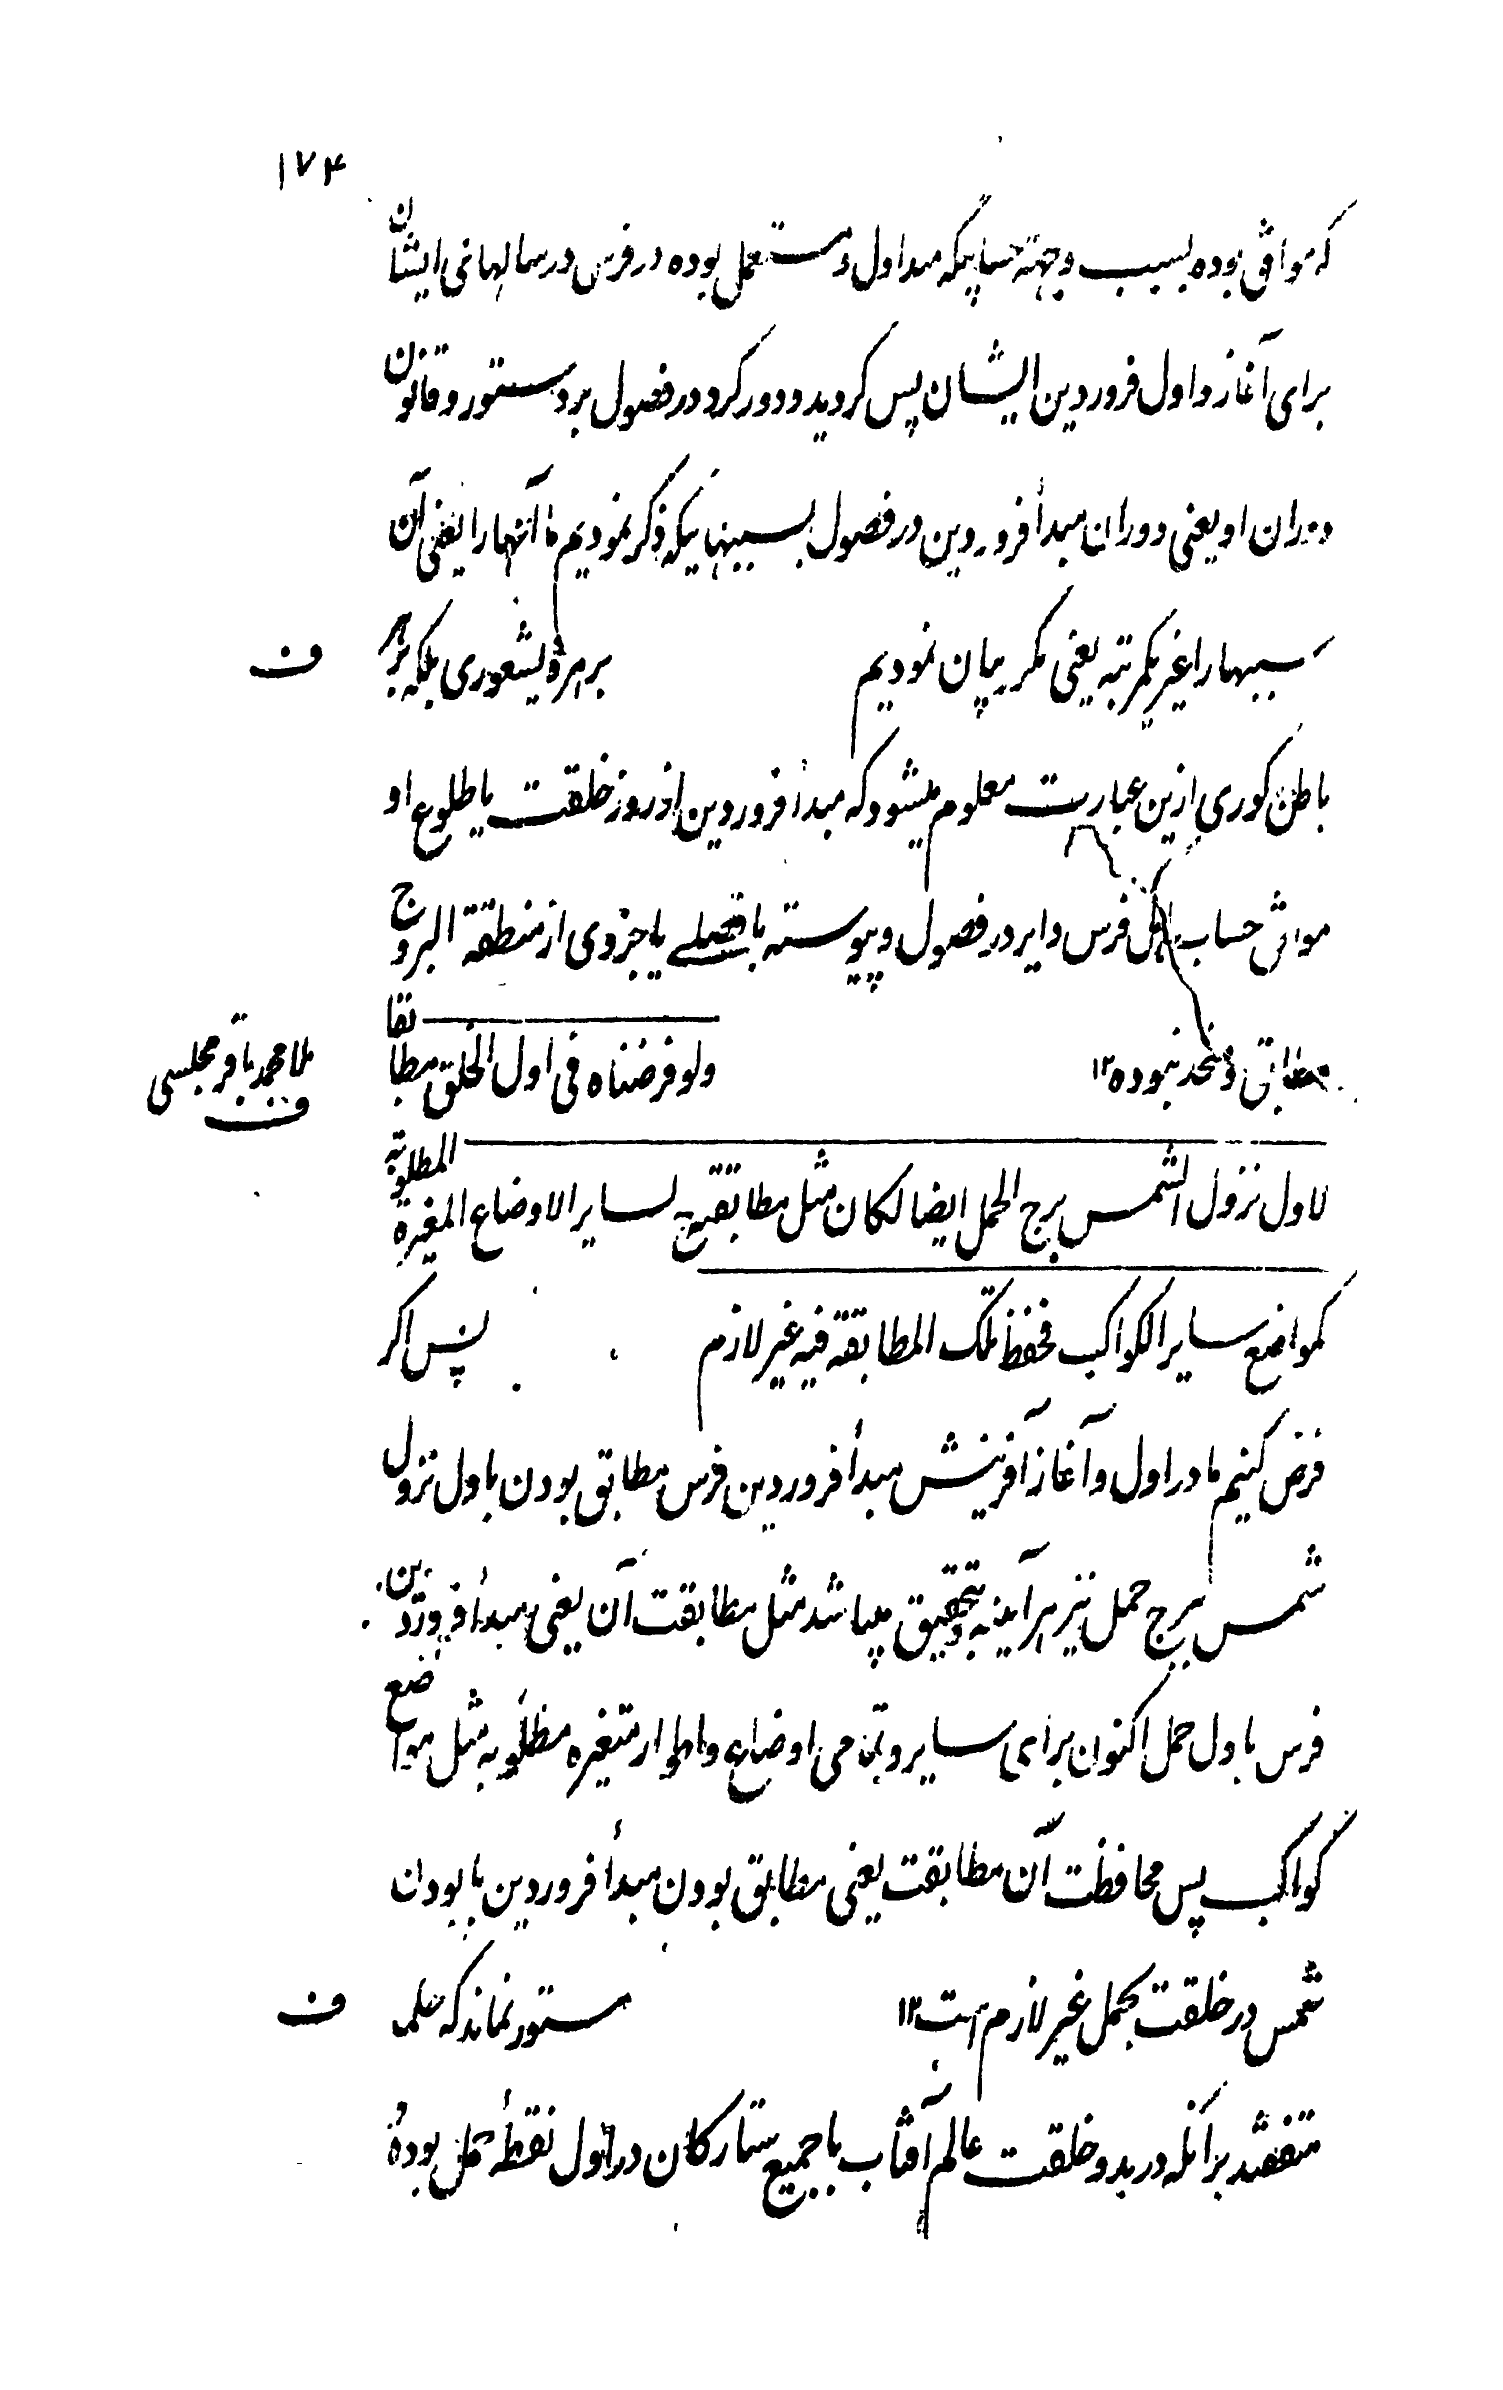 ۱۷۴
که موافق بوده بسبب وجهته حسابیکه متداول و مستعمل بوده در فرس در سالهائی ایشان
برای آغاز و اول فروردین ایشان پس گردید و دور کرد در فصول بر دستور و قانون
دوران او یعنی دوران مبدأ فروردین در فصول بسببهائیکه ذکر نمودیم ما آنها را یعنی آن
سببها را غیر یکمرتبه یعنی مکرر بیان نمودیم برمرهٔ بشعوری بلکه بر ف
باطن کوری ازین عبارت معلوم میشود که مبدأ فروردین از روز خلقت یا طلوع او
موافق حساب اهل فرس دایر در فصول و پیوسته با فصلے یا جزوی از منطقة البروج
مطابق و متحد نبوده ۱۲ ولو فرضناه فی اول الخلق مطابقا ملا محمد باقر مجلسی ف
لاول نزول الشمس برج الحمل ایضا لکان مثل مطابقته لسایر الاوضاع المغیرة المطلوبة
کمواضع سایر الکواکب فحفظ تلک المطابقة فیه غیر لازم پس اگر
فرض کنیم ما در اول و آغاز آفرینش مبدأ فروردین فرس مطابق بودن باول نزول
شمس ببرج حمل نیز هر آینه بتحقیق میباشد مثل مطابقت آن یعنی مبدأ فروردین
فرس باول حمل اکنون برای سایر و تمامی اوضاع و اطوار متغیره مطلوبه مثل مواضع
کواکب پس محافظت آن مطابقت یعنی مطابق بودن مبدأ فروردین با بودن
شمس در خلقت بحمل غیر لازم است ۱۲ مستور نماند که علما ف
متفقند برآنکه در بدو خلقت عالم آفتاب با جمیع ستارگان در اول نقطهٔ حمل بوده و